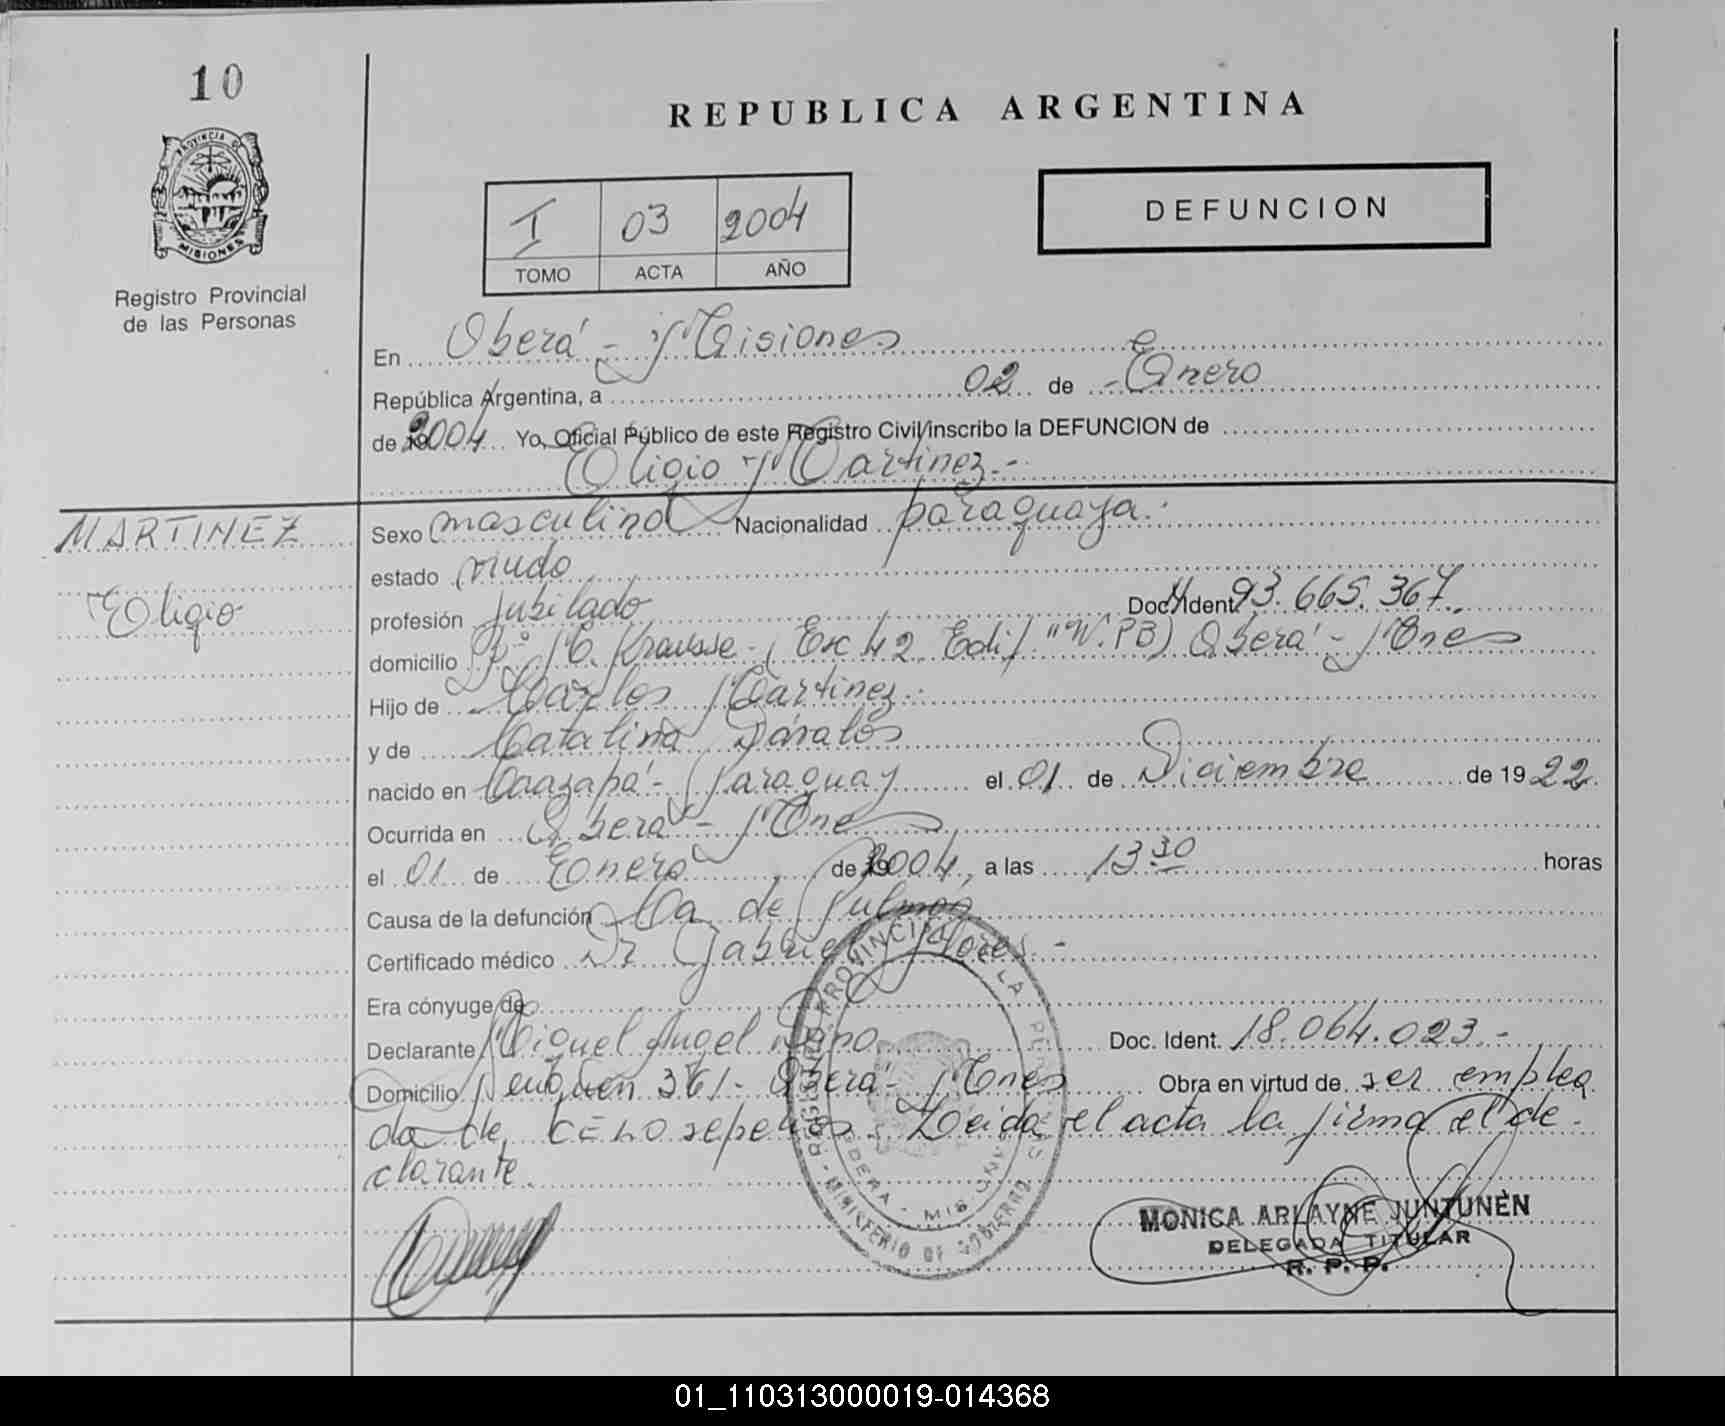 10
REPUBLICA ARGENTINA
PROVINCIA DE
MISIONES
Registro Provincial
de las Personas
I 03 2004
TOMO ACTA AÑO
DEFUNCION
En Oberá - Misiones
República Argentina, a 02 de - Enero
de 2004 Yo, Oficial Público de este Registro Civil inscribo la DEFUNCION de
Eligio Martinez.-
MARTINEZ
Eligio
Sexo masculino Nacionalidad paraguaya.
estado viudo
profesión jubilado Doc. Ident 93.665.367.
domicilio Bº Krausse - (Esc 42 Edif "W. PB) Oberá - Mnes
Hijo de Carlos Martinez.
y de Catalina Dávalos
nacido en Caazapá - Paraguay el 01 de Diciembre de 1922.
Ocurrida en Oberá - Mnes
el 01 de Enero de 2004, a las 13 30 horas
Causa de la defunción Ca de Pulmón
Certificado médico Dr Gabriel Flores -
Era cónyuge de
Declarante Miguel Angel Doc. Ident. 18.064.023.-
Domicilio Neuquen 361 - Oberá - Mnes Obra en virtud de ser emplea
do de CELO sepelios. Leida el acta la firma el de-
clarante.
MONICA ARLAYNE JUNTUNEN
DELEGADA TITULAR
R. P. P.
REGISTRO PROVINCIAL DE LA PERSONAS
MINISTERIO DE GOBIERNO
OBERA - MISIONES
01_110313000019-014368